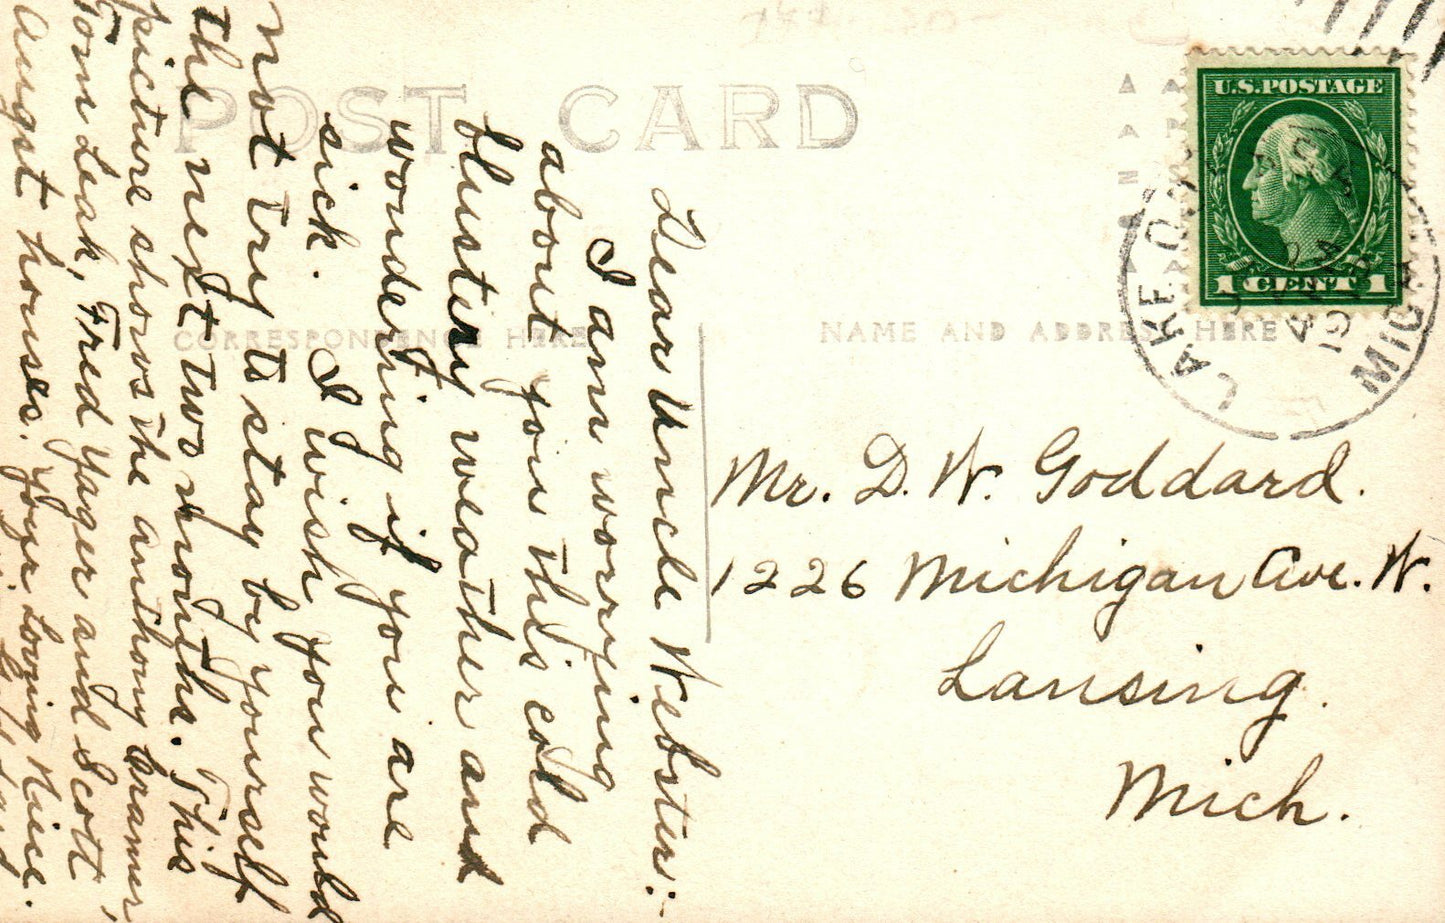 POST CARD
CORRESPONDENCE HERE
NAME AND ADDRESS HERE
U.S. POSTAGE
1 CENT 1
LAKE
MICH
Dear Uncle Webster:-
I am worrying
about you this cold
blustery weather and
wondering if you are
sick. I wish you would
not try to stay by yourself
the next two months. This
picture shows the anthony Cramer,
Tom Leak, Fred Yager and Scott
August houses. Your Loving Niece.
Mr. D. W. Goddard.
1226 Michigan Ave. W.
Lansing.
Mich.